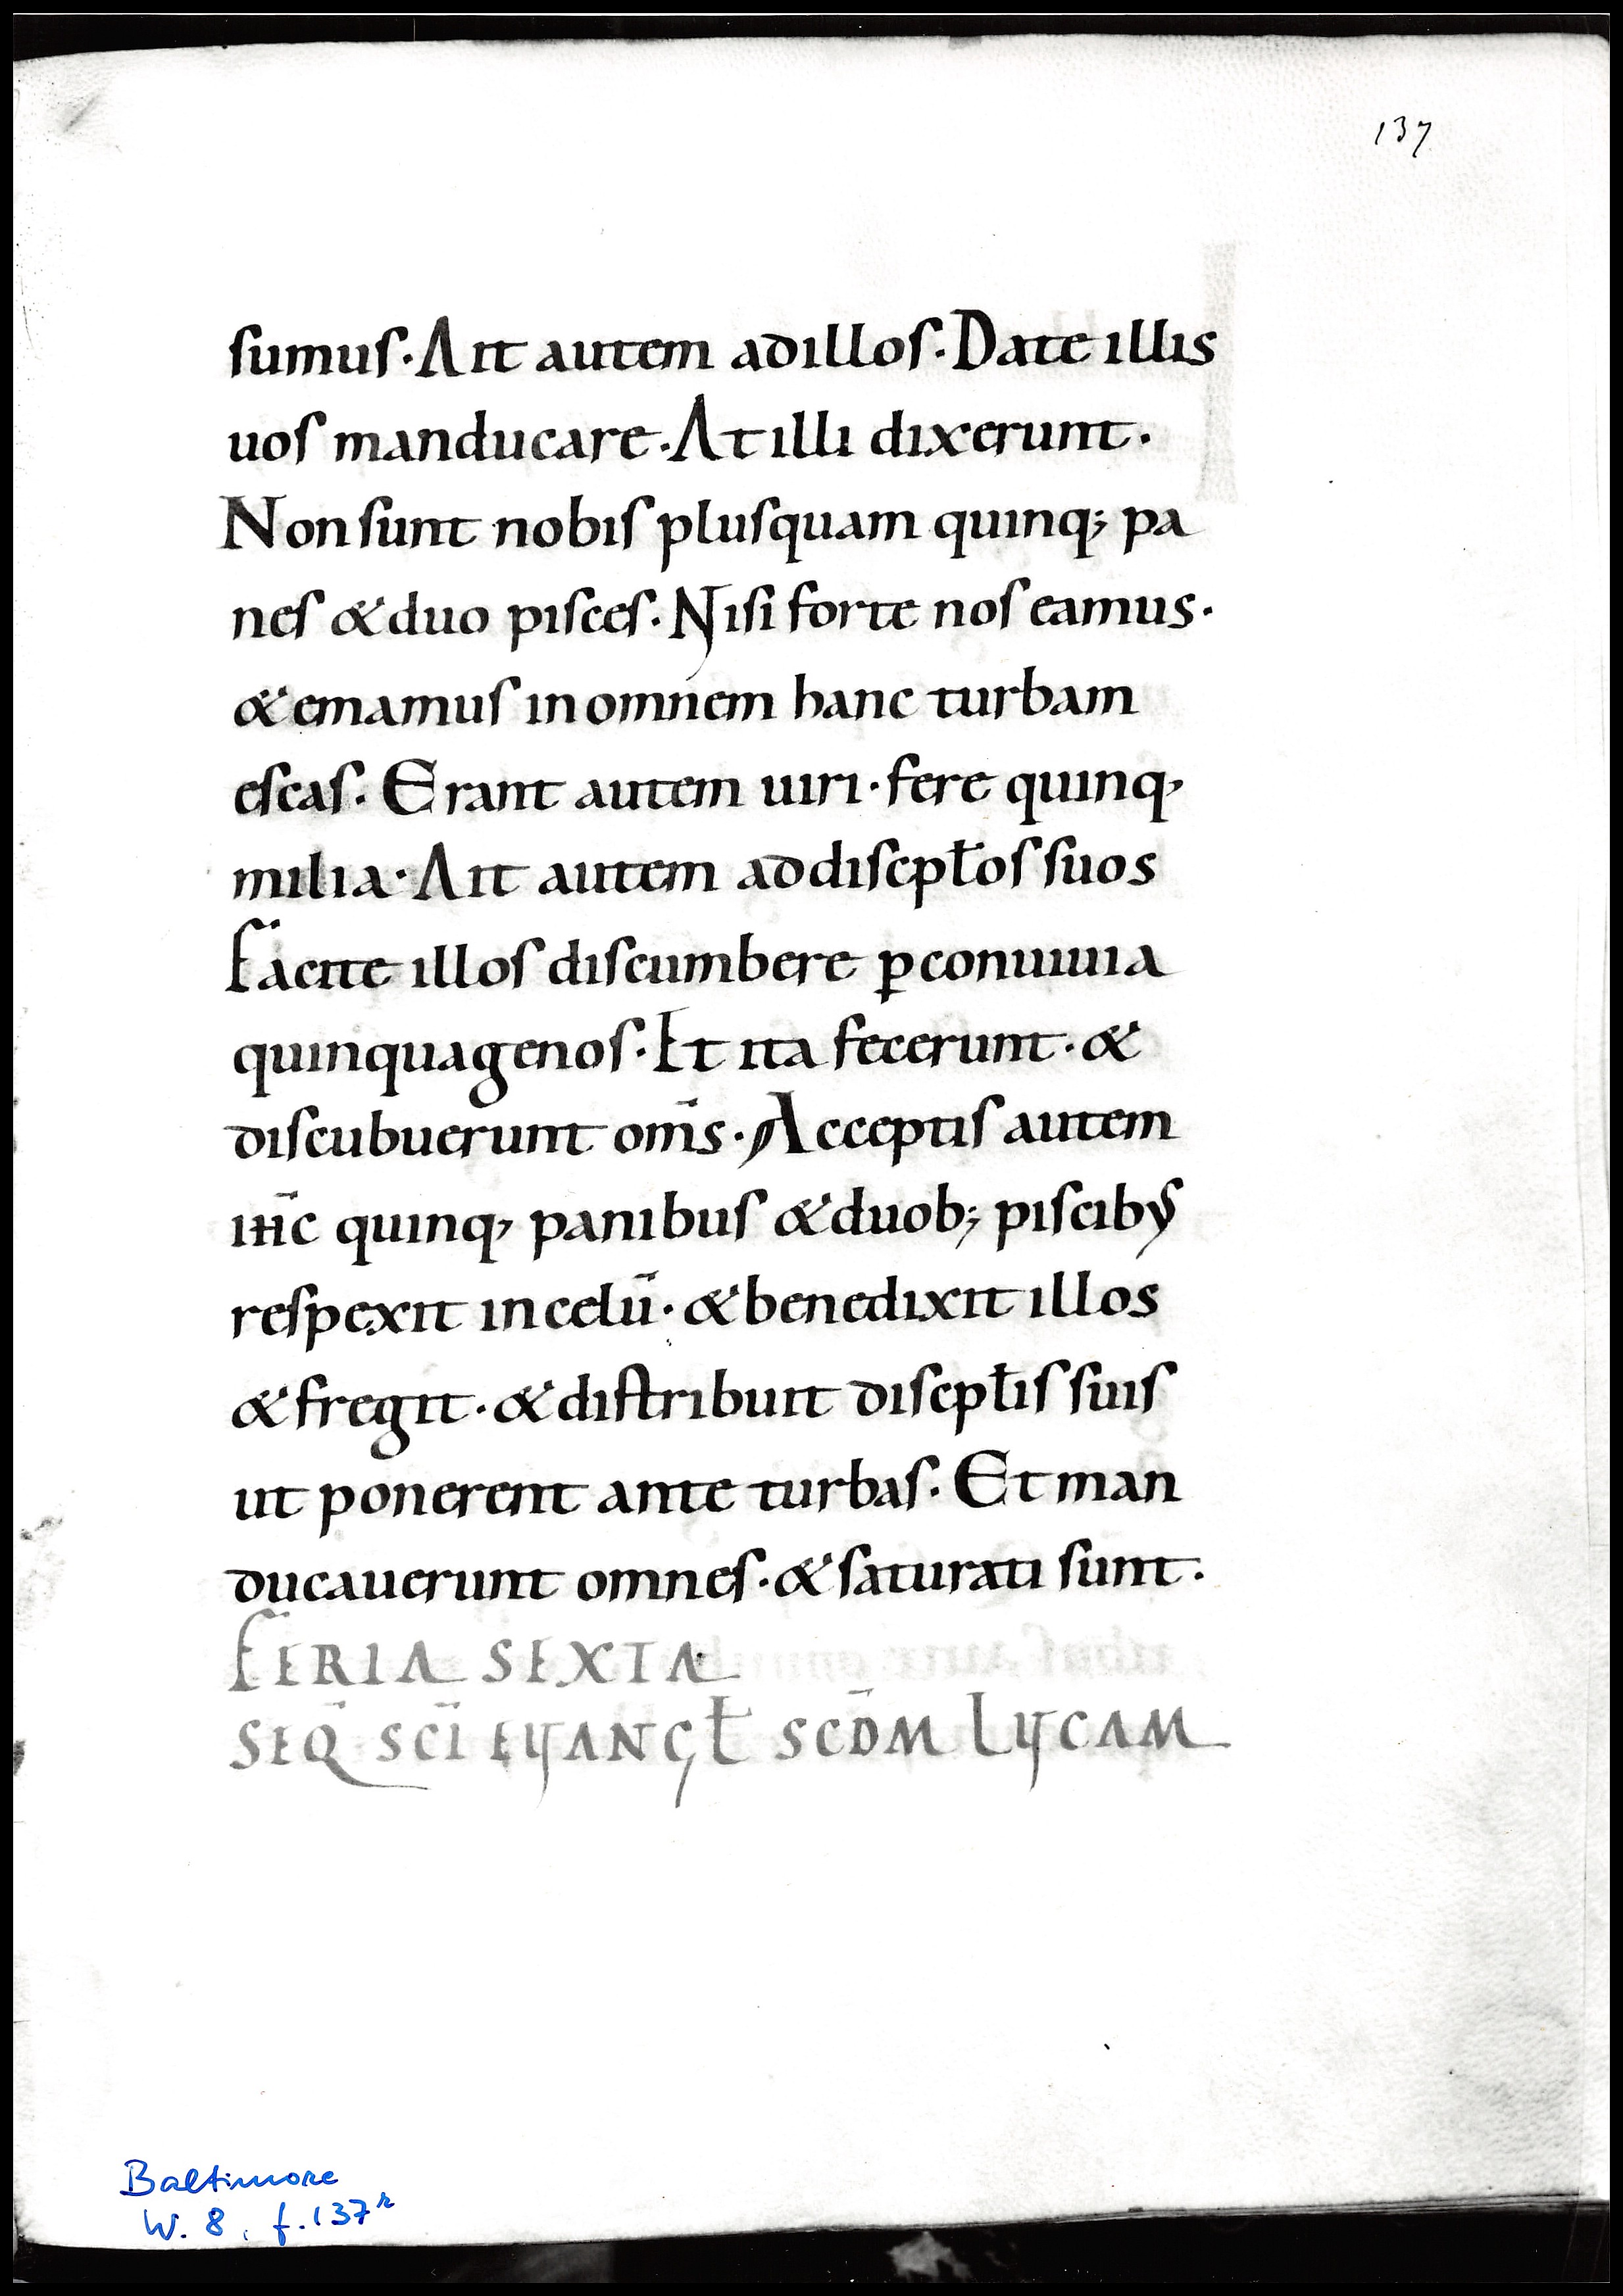 137
sumus. Ait autem adillos. Date illis
uos manducare. At illi dixerunt.
Non sunt nobis plusquam quinq; pa
nes &duo pisces. Nisi forte nos eamus.
&emamus inomnem hanc turbam
escas. Erant autem uiri. fere quinq,
milia. Ait autem addiscipłos suos
Facite illos discumbere ꝑconuiuia
quinquagenos. Et ita fecerunt. &
discubuerunt om̄s. Acceptis autem
ih̄c quinq, panibus &duob; piscibus
respexit incelū. &benedixit illos
&fregit. &distribuit discipłis suis
ut ponerent ante turbas. Et man
ducauerunt omnes. &saturati sunt.
FERIA SEXTA
SEQ̄ SC̄I EUANGŁ SCD̄M LUCAM
Baltimore
W. 8, f. 137r